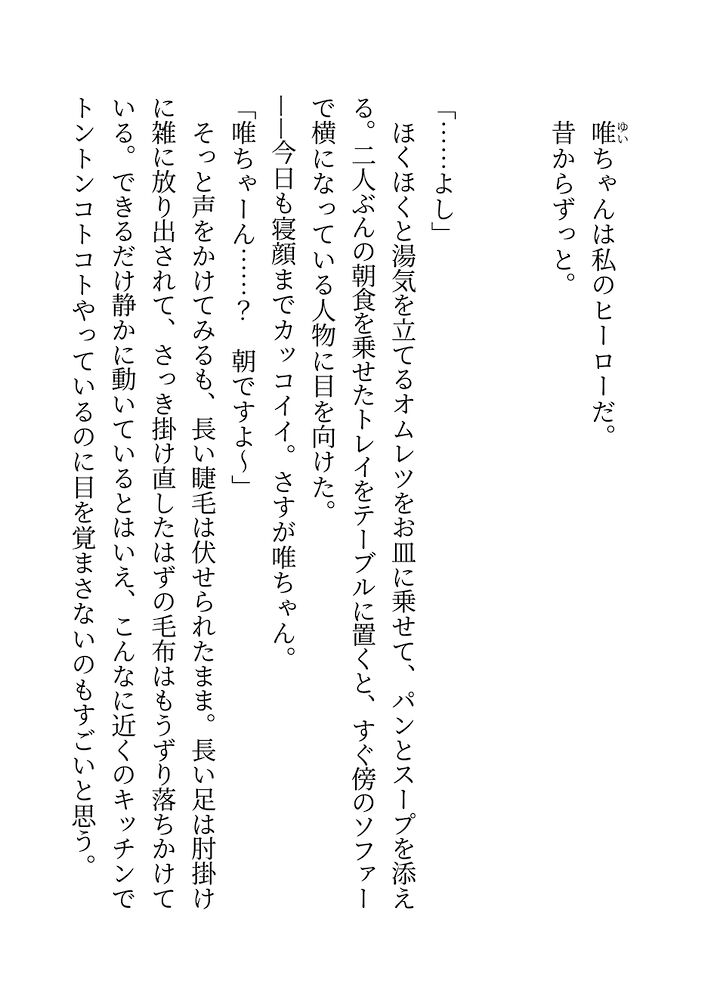 唯ちゃんは私のヒーローだ。
ゆい
昔からずっと。
「……よし」
ほくほくと湯気を立てるオムレツをお皿に乗せて、パンとスープを添え
る。二人ぶんの朝食を乗せたトレイをテーブルに置くと、すぐ傍のソファー
で横になっている人物に目を向けた。
――今日も寝顔までカッコイイ。さすが唯ちゃん。
「唯ちゃーん……？　朝ですよ〜」
そっと声をかけてみるも、長い睫毛は伏せられたまま。長い足は肘掛け
に雑に放り出されて、さっき掛け直したはずの毛布はもうずり落ちかけて
いる。できるだけ静かに動いているとはいえ、こんなに近くのキッチンで
トントンコトコトやっているのに目を覚まさないのもすごいと思う。